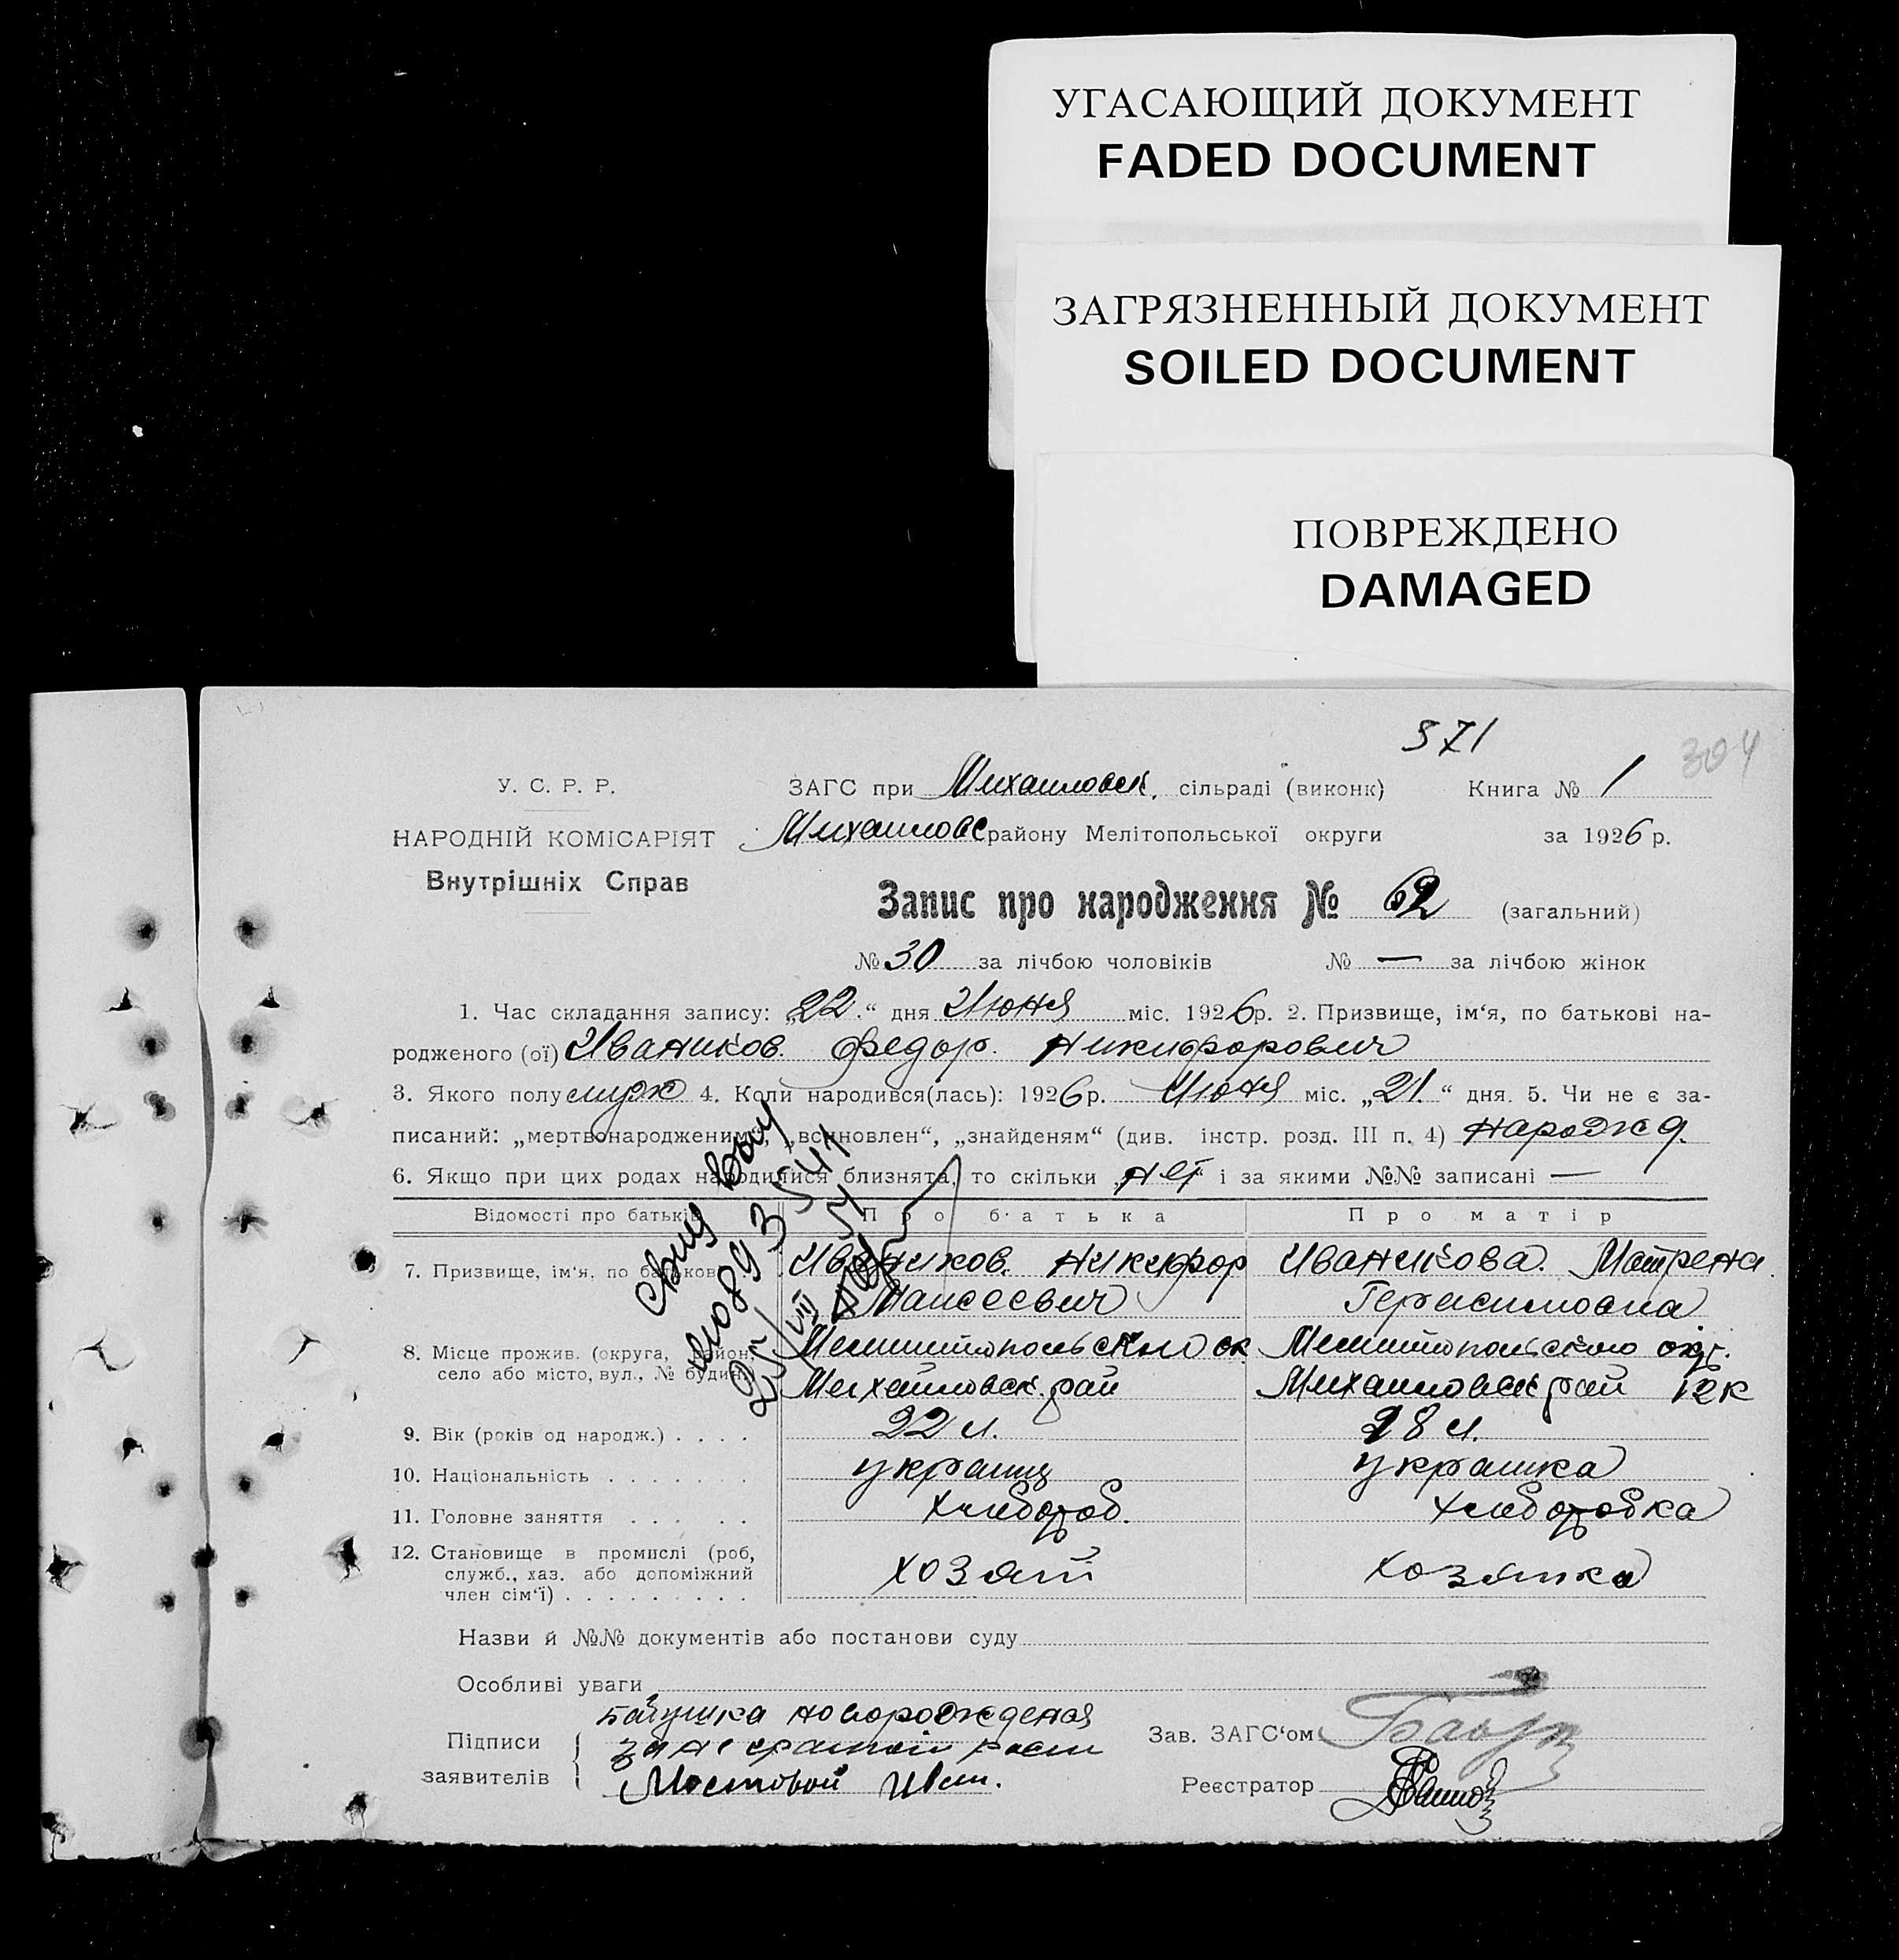 УГАСАЮЩИЙ ДОКУМЕНТ
FADED DOCUMENT
ЗАГРЯЗНЕННЫЙ ДОКУМЕНТ
SOILED DOCUMENT
ПОВРЕЖДЕНО
DAMAGED
371
304
У. С. Р. Р.
НАРОДНІЙ КОМІСАРІЯТ
Внутрішніх Справ
ЗАГС при Михайловск. сільраді (виконк) Книга № 1
Михайловс району Мелітопольської округи за 1926 р.
Запис про народження № 62 (загальний)
№ 30 за лічбою чоловіків № — за лічбою жінок
1. Час складання запису: „22“ дня Июня міс. 1926р. 2. Призвище, ім‘я, по батькові на-
родженого (ої) Иваников. Федор. Никифорович
3. Якого полу муж 4. Коли народився(лась): 1926р. Июня міс. „21“ дня. 5. Чи не є за-
писаний: „мертвонародженим“, „всиновлен“, „знайденям“ (див. інстр. розд. III п. 4) нарожд.
6. Якщо при цих родах народилися близнята, то скільки „нет“ і за якими №№ записані —
Відомості про батьків Про батька Про матір
7. Призвище, ім‘я, по батькові Иваников. Никифор Иваникова. Матрена
Маисеевич Герасимовна
8. Місце прожив. (округа, район, Мелитопольского ок Мелитопольского окр.
село або місто, вул., № будин.) Михайловск. рай Михайловск рай 12к
9. Вік (років од народж.) . . . . 22 л. 28 л.
10. Національність . . . . . . . украинц украинка
11. Головне заняття . . . . . хлебороб. хлеборобка
12. Становище в промислі (роб, хозяин хозяика
служб., хаз. або допоміжний
член сім‘ї) . . . . . . . . .
Назви й №№ документів або постанови суду
Особливі уваги
Підписи
заявителів
Бабушка новорожденоя
за
Мостовой Ив
Зав. ЗАГС‘ом
Реєстратор